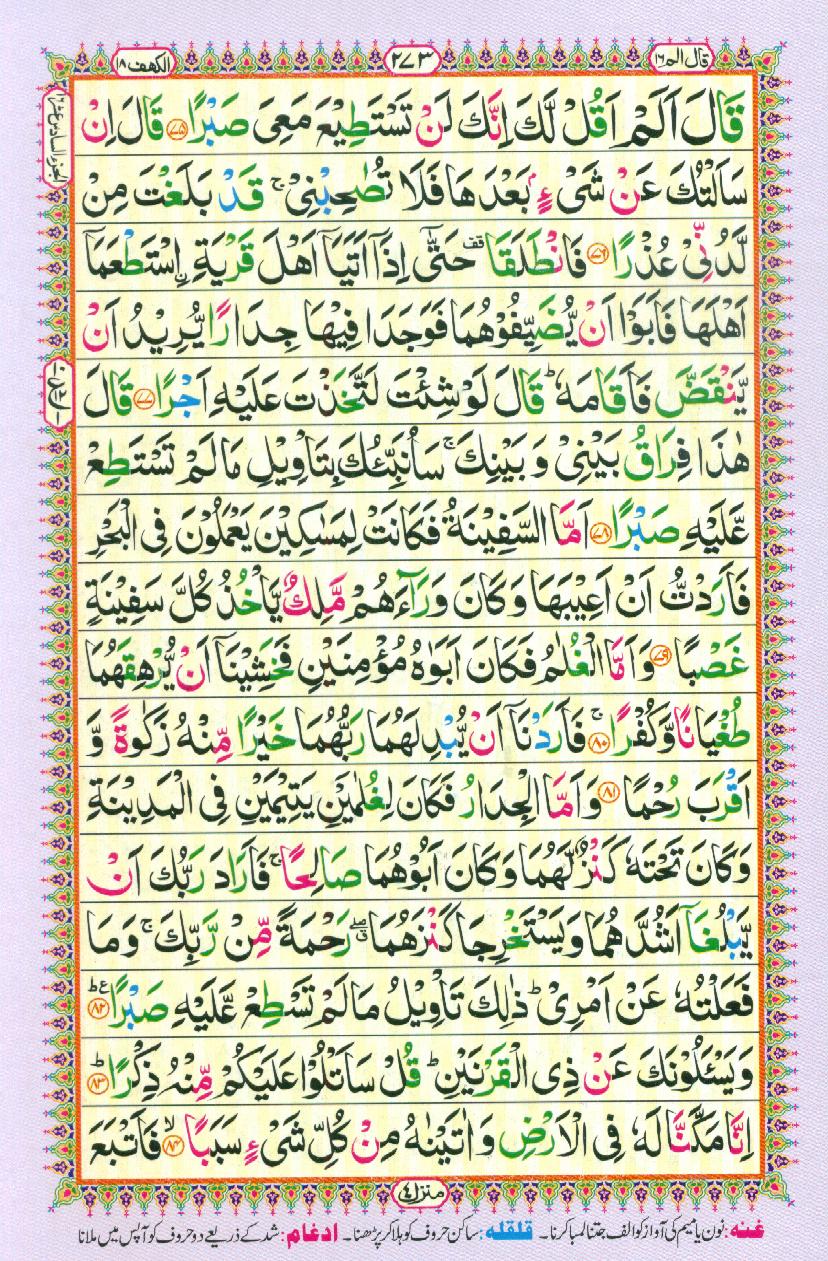 قال الم ١٦
٢٧٣
الكهف ١٨
الجزء السادس عشر ١٦
قَالَ اَلَمْ اَقُلْ لَّكَ اِنَّكَ لَنْ تَسْتَطِيْعَ مَعِىَ صَبْرًا ﴿۷۵﴾ قَالَ اِنْ
سَاَلْتُكَ عَنْ شَىْءٍۭ بَعْدَهَا فَلَا تُصٰحِبْنِىْ ۚ قَدْ بَلَغْتَ مِنْ
لَّدُنِّىْ عُذْرًا ﴿۷۶﴾ فَانْطَلَقَا ۥقف حَتّٰٓى اِذَآ اَتَيَآ اَهْلَ قَرْيَةِ ۨاسْتَطْعَمَآ
اَهْلَهَا فَاَبَوْا اَنْ يُّضَيِّفُوْهُمَا فَوَجَدَا فِيْهَا جِدَارًا يُّرِيْدُ اَنْ
يَّنْقَضَّ فَاَقَامَهٗ ؕ قَالَ لَوْ شِئْتَ لَتَّخَذْتَ عَلَيْهِ اَجْرًا ﴿۷۷﴾ قَالَ
هٰذَا فِرَاقُ بَيْنِىْ وَ بَيْنِكَ ۚ سَاُنَبِّئُكَ بِتَاْوِيْلِ مَا لَمْ تَسْتَطِعْ
عَّلَيْهِ صَبْرًا ﴿۷۸﴾ اَمَّا السَّفِيْنَةُ فَكَانَتْ لِمَسٰكِيْنَ يَعْمَلُوْنَ فِى الْبَحْرِ
فَاَرَدْتُّ اَنْ اَعِيْبَهَا وَ كَانَ وَرَآءَهُمْ مَّلِكٌ يَّاْخُذُ كُلَّ سَفِيْنَةٍ
غَصْبًا ﴿۷۹﴾ وَ اَمَّا الْغُلٰمُ فَكَانَ اَبَوٰهُ مُؤْمِنَيْنِ فَخَشِيْنَآ اَنْ يُّرْهِقَهُمَا
طُغْيَانًا وَّ كُفْرًا ۚ ﴿۸۰﴾ فَاَرَدْنَآ اَنْ يُّبْدِلَهُمَا رَبُّهُمَا خَيْرًا مِّنْهُ زَكٰوةً وَّ
اَقْرَبَ رُحْمًا ﴿۸۱﴾ وَ اَمَّا الْجِدَارُ فَكَانَ لِغُلٰمَيْنِ يَتِيْمَيْنِ فِى الْمَدِيْنَةِ
وَ كَانَ تَحْتَهٗ كَنْزٌ لَّهُمَا وَ كَانَ اَبُوْهُمَا صَالِحًا ۚ فَاَرَادَ رَبُّكَ اَنْ
يَّبْلُغَآ اَشُدَّهُمَا وَ يَسْتَخْرِجَا كَنْزَهُمَا ۖق رَحْمَةً مِّنْ رَّبِّكَ ۚ وَ مَا
فَعَلْتُهٗ عَنْ اَمْرِىْ ؕ ذٰلِكَ تَاْوِيْلُ مَا لَمْ تَسْطِعْ عَّلَيْهِ صَبْرًا ؕ ع ﴿۸۲﴾
وَ يَسْـَٔلُوْنَكَ عَنْ ذِى الْقَرْنَيْنِ ؕ قُلْ سَاَتْلُوْا عَلَيْكُمْ مِّنْهُ ذِكْرًا ؕ ﴿۸۳﴾
اِنَّا مَكَّنَّا لَهٗ فِى الْاَرْضِ وَ اٰتَيْنٰهُ مِنْ كُلِّ شَىْءٍ سَبَبًا ۙ ﴿۸۴﴾ فَاَتْبَعَ
منزل ٤
غنه: نون یا میم کی آواز کو الف جتنا لمبا کرنا۔ قلقله: ساکن حروف کو ہلا کر پڑھنا۔ ادغام: شد کے ذریعے دو حروف کو آپس میں ملانا